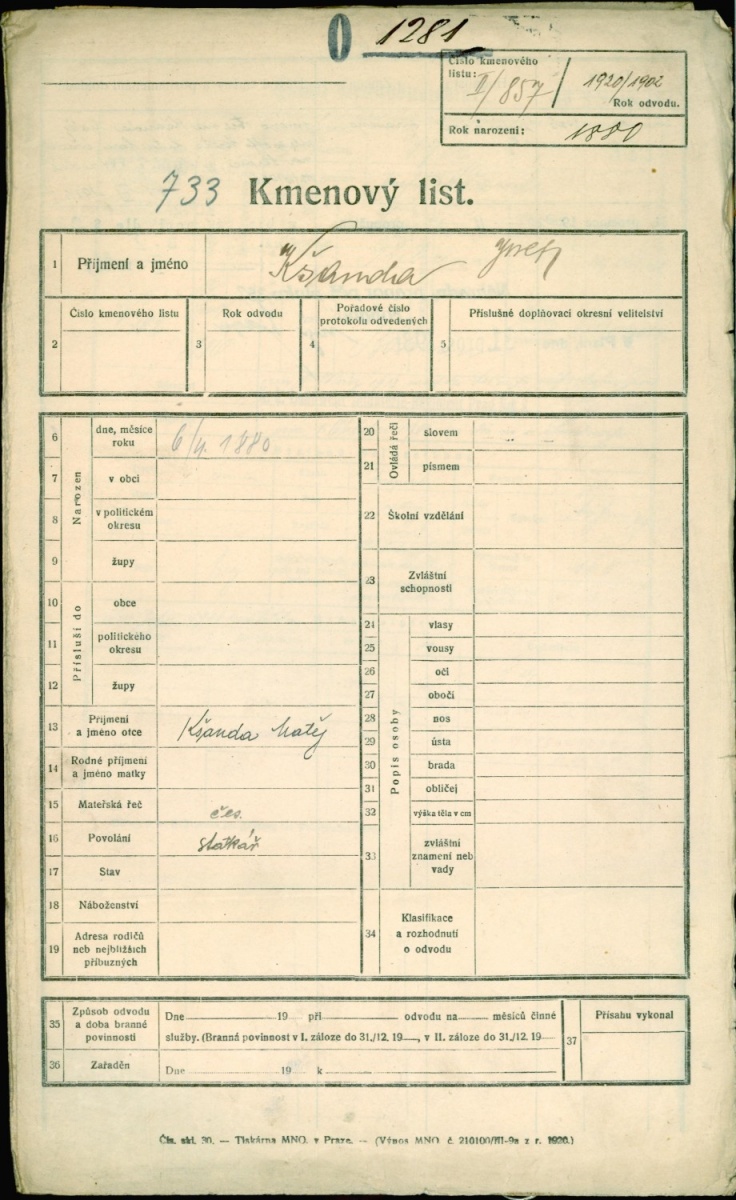 0 1281
Číslo kmenového
listu: II/857/ 1920/1902
Rok odvodu.
Rok narození: 1880
733 Kmenový list.
1 Příjmení a jméno Kšanda Josef
2 Číslo kmenového listu
3 Rok odvodu
4 Pořadové číslo
protokolu odvedených
5 Příslušné doplňovací okresní velitelství
Narozen
6 dne, měsíce
roku 6/4 1880
7 v obci
8 v politickém
okresu
9 župy
Přísluší do
10 obce
11 politického
okresu
12 župy
13 Příjmení
a jméno otce Kšanda Matěj
14 Rodné příjmení
a jméno matky
15 Mateřská řeč čes.
16 Povolání statkář
17 Stav
18 Náboženství
19 Adresa rodičů
neb nejbližších
příbuzných
Ovládá řeči
20 slovem
21 písmem
22 Školní vzdělání
23 Zvláštní
schopnosti
Popis osoby
24 vlasy
25 vousy
26 oči
27 obočí
28 nos
29 ústa
30 brada
31 obličej
32 výška těla v cm
33 zvláštní
znamení neb
vady
34 Klasifikace
a rozhodnutí
o odvodu
35 Způsob odvodu
a doba branné
povinnosti
Dne 19 při odvodu na měsíců činné
služby. (Branná povinnost v I. záloze do 31./12. 19, v II. záloze do 31./12. 19
36 Zařaděn
Dne 19 k
37 Přísahu vykonal
Čís. skl. 30. — Tiskárna MNO. v Praze. — (Výnos MNO. č. 210100/III-9a z r. 1920.)